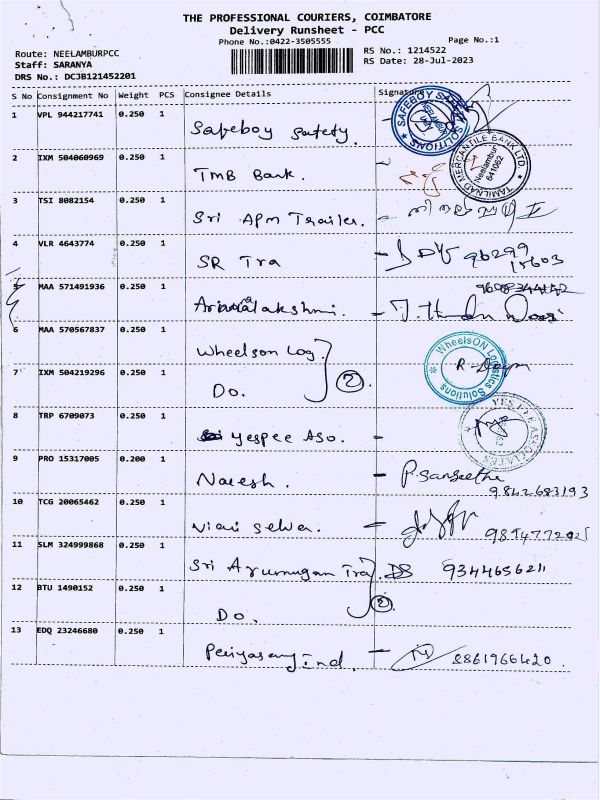 THE PROFESSIONAL COURIERS, COIMBATORE
Delivery Runsheet - PCC
Phone No.:0422-3505555
Page No.:1
Route: NEELAMBURPCC
RS No.: 1214522
Staff: SARANYA
RS Date: 28-Jul-2023
DRS No.: DCJB121452201
S No Consignment No Weight PCS Consignee Details Signature
1 VPL 944217741 0.250 1 Safeboy Safety.
SAFEBOY SAFETY SOLUTIONS
2 IXM 504060969 0.250 1 TMB Bank.
TAMILNAD MERCANTILE BANK LTD.
Neelambur
641062
3 TSI 8082154 0.250 1 Sri APM Trailer.
4 VLR 4643774 0.250 1 SR Tra 96299
15603
5 MAA 571491936 0.250 1
6 MAA 570567837 0.250 1 Wheelson Log.
WheelsON Logistics Solutions
7 IXM 504219296 0.250 1 Do. 2
8 TRP 6709073 0.250 1 Yespee Aso.
9 PRO 15317005 0.200 1 Naresh. P. Sangeetha
9842683193
10 TCG 20065462 0.250 1
11 SLM 324999868 0.250 1 Sri Arumugan Tra DS 9344656211
12 BTU 1490152 0.250 1 Do. 2
13 EDQ 23246680 0.250 1 Periyasamy Ind. 8861966420.